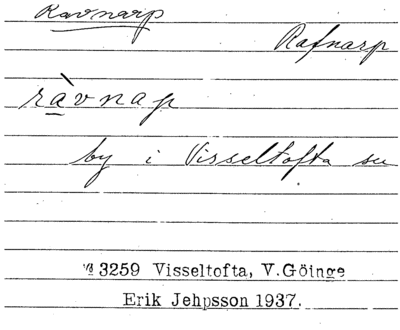 Ravnarp
Rafnarp
ràvnap
by i Visseltofta su
3259 Visseltofta, V. Göinge
Erik Jehpsson 1937.